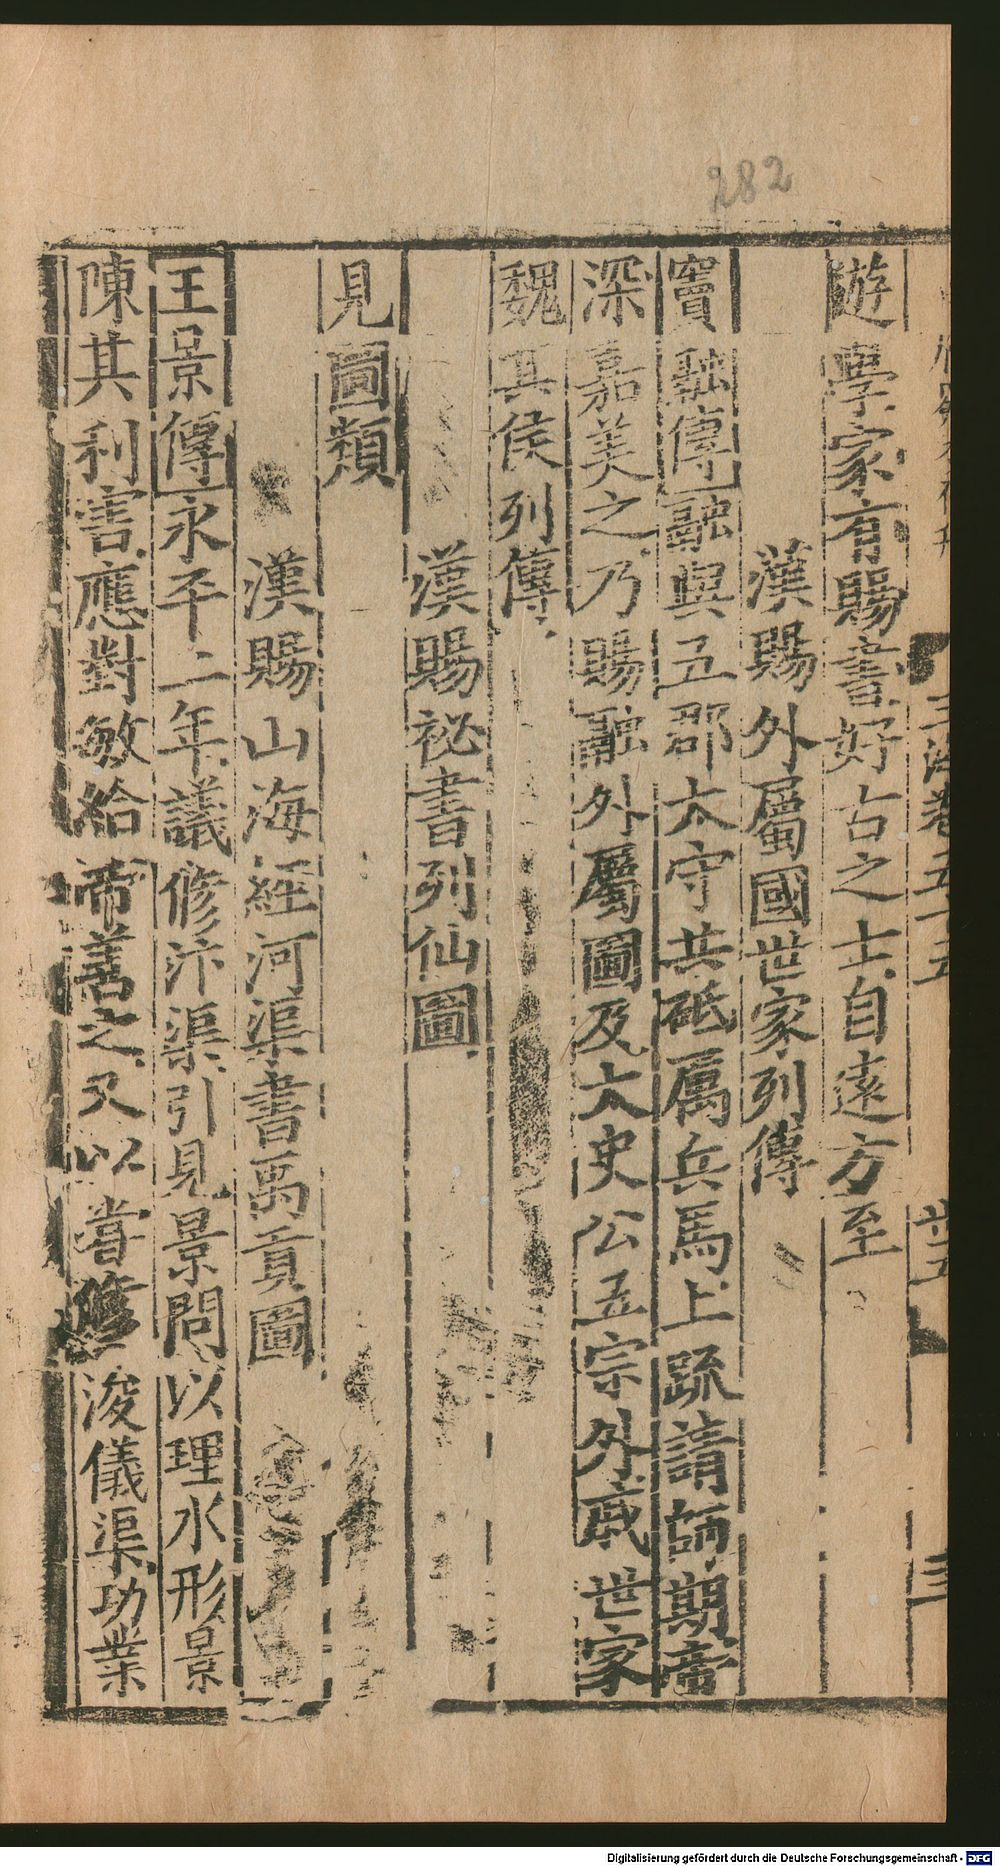 282
三法卷五十五
廿五
三
遊學家有賜書好古之士自遠方至
漢賜外屬國世家列傳
竇融傳融與五郡太守共砥厲兵馬上疏請師期帝
深嘉美之乃賜融外屬圖及太史公五宗外戚世家
魏其侯列傳
漢賜祕書列仙圖
見圖類
漢賜山海經河渠書禹貢圖
王景傳永平十二年議修汴渠引見景問以理水形景
陳其利害應對敏給帝善之又以嘗修浚儀渠功業
Digitalisierung gefördert durch die Deutsche Forschungsgemeinschaft - DFG